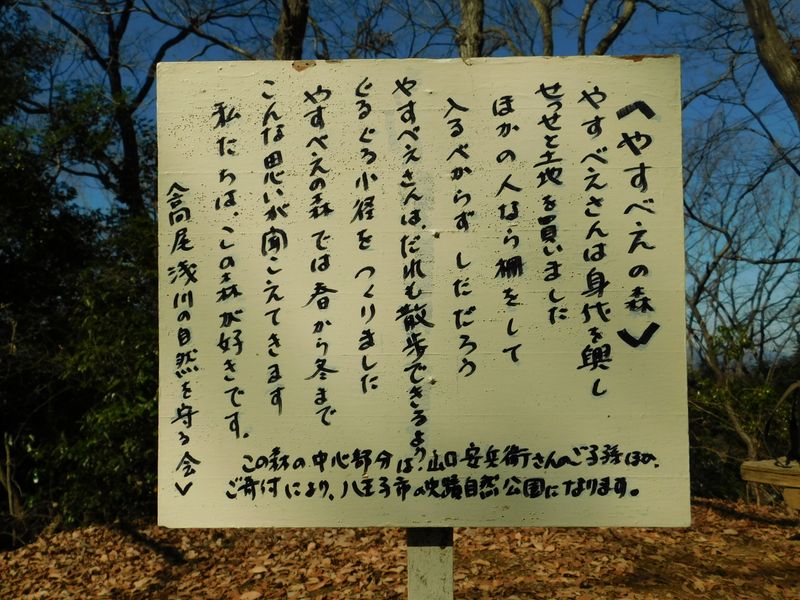 <やすべえの森>
やすべえさんは身代を興し
せっせと土地を買いました
ほかの人なら柵をして
入るべからず しただろう
やすべえさんは、だれも散歩できるよう
ぐるぐる小径を つくりました
やすべえの森では春から冬まで
こんな思いが聞こえてきます
私たちは、この森が好きです。
<高尾浅川の自然を守る会>
この森の中心部分は、山口安兵衛さんのご子孫ほか、
ご寄付により、八王子市の史蹟自然公園になります。